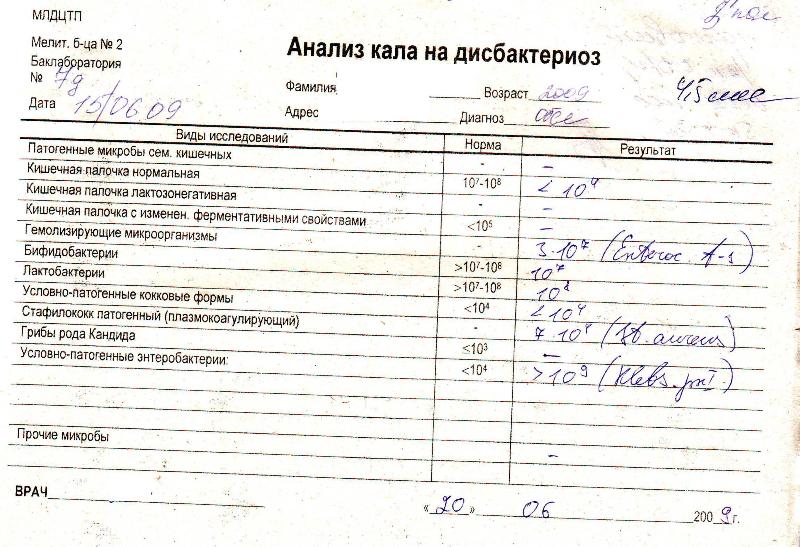 МЛДЦТП
Мелит. б-ца № 2
Баклаборатория
№ 7д
Дата 15/06 09
Анализ кала на дисбактериоз
Фамилия Возраст 2009
Адрес Диагноз
Виды исследований Норма Результат
Патогенные микробы сем. кишечных - –
Кишечная палочка нормальная 10⁷-10⁸ < 10⁴
Кишечная палочка лактозонегативная –
Кишечная палочка с изменен. ферментативными свойствами <10⁵ –
Гемолизирующие микроорганизмы - 3·10⁷ (Enteroc. A-1)
Бифидобактерии >10⁷-10⁸ 10⁷
Лактобактерии >10⁷-10⁸
Условно-патогенные кокковые формы <10⁴ < 10⁴
Стафилококк патогенный (плазмокоагулирующий) - (St. aureus)
Грибы рода Кандида <10³ –
Условно-патогенные энтеробактерии: <10⁴ > 10⁹
Прочие микробы –
ВРАЧ
« 20 » 06 2009 г.